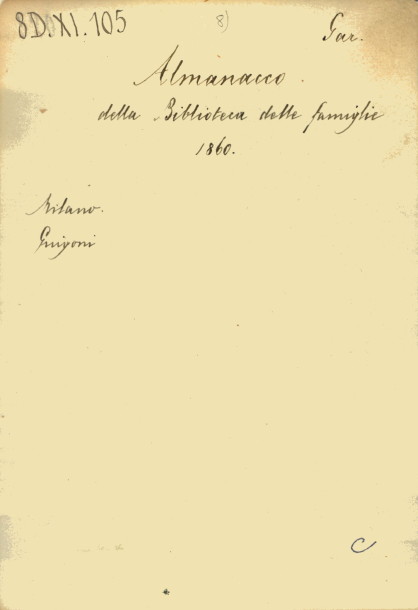 8D.XI.105 8) Gar.
Almanacco.
della Biblioteca delle famiglie
1860.
Milano.
Guigoni
C
*